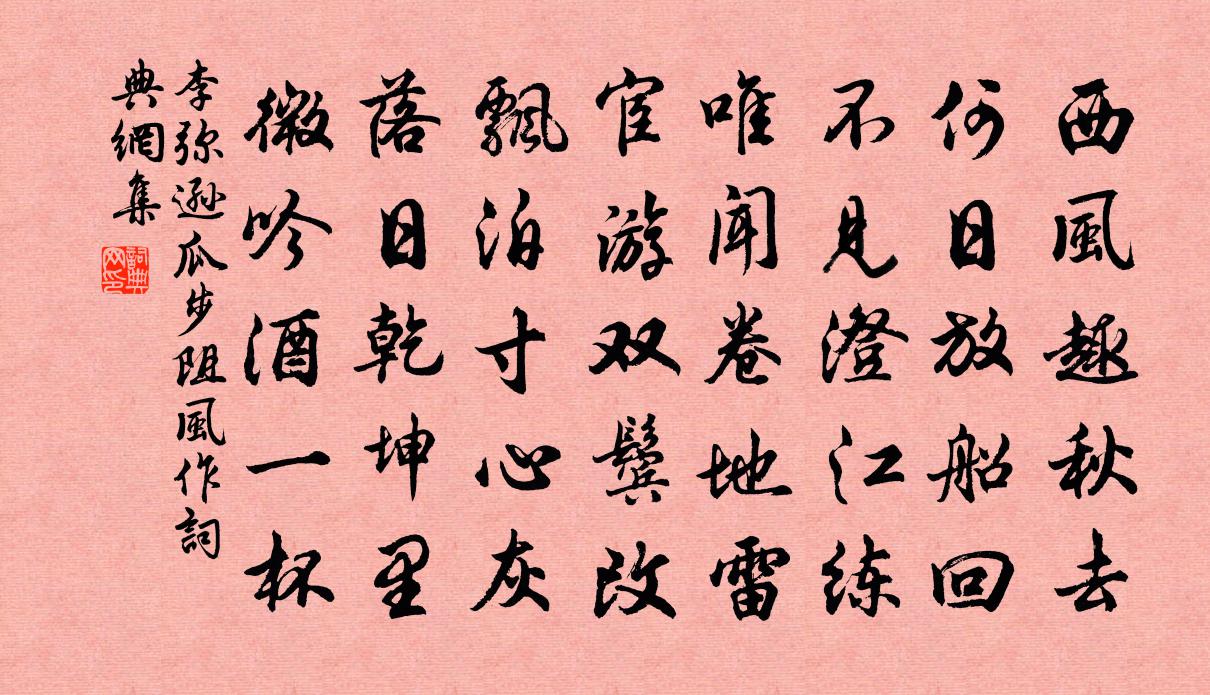 西風趣秋去
何日放船回
不见澄江练
唯闻卷地雷
宦游双鬓改
飄泊寸心灰
落日乾坤里
微吟酒一杯
李弥遜瓜步阻風作詞
典網集
詞典
网印